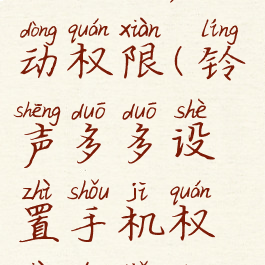 dòng quán xiàn líng
动权限(铃
shēng duō duō shè
声多多设
zhì shǒu jī quán
置手机权